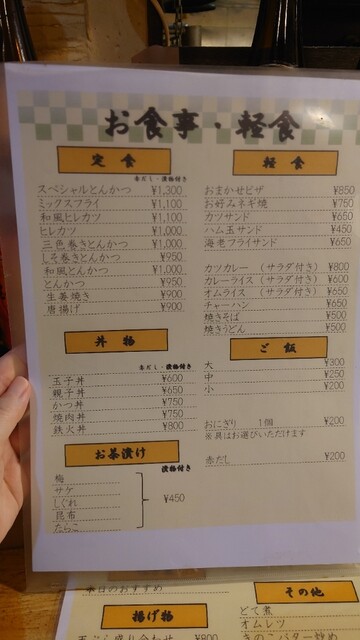 お食事・軽食
定食
赤だし・漬物付き
スペシャルとんかつ ¥1,300
ミックスフライ ¥1,100
和風ヒレカツ ¥1,100
ヒレカツ ¥1,000
三色巻きとんかつ ¥1,000
しそ巻きとんかつ ¥950
和風とんかつ ¥1,000
とんかつ ¥950
生姜焼き ¥900
唐揚げ ¥900
丼物
赤だし・漬物付き
玉子丼 ¥600
親子丼 ¥650
かつ丼 ¥750
焼肉丼 ¥750
鉄火丼 ¥800
お茶漬け
漬物付き
梅
サケ
しぐれ
昆布
たらこ
¥450
軽食
おまかせピザ ¥850
お好みネギ焼 ¥750
カツサンド ¥650
ハム玉サンド ¥450
海老フライサンド ¥650
カツカレー （サラダ付き） ¥800
カレーライス （サラダ付き） ¥600
オムライス （サラダ付き） ¥650
チャーハン ¥650
焼きそば ¥500
焼きうどん ¥500
ご飯
大 ¥300
中 ¥250
小 ¥200
おにぎり 1個 ¥200
※具はお選びいただけます
赤だし ¥200
本日のおすすめ
揚げ物
天ぷら盛り合わせ ¥800
その他
どて煮
オムレツ
きのこバター炒め